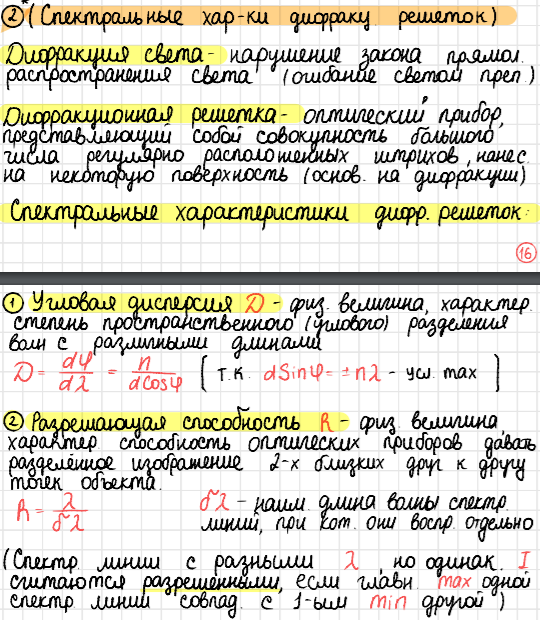 ② (Спектральные хар-ки дифракц решеток)
Дифракция света - нарушение закона прямол.
распространения света (огибание светом преп.)
Дифракционная решетка - оптический прибор,
представляющий собой совокупность большого
числа регулярно расположенных штрихов, нанес.
на некоторую поверхность (основ. на дифракции)
Спектральные характеристики дифр. решеток:
16
① Угловая дисперсия D - физ. величина, характер.
степень пространственного (углового) разделения
волн с различными длинами
D = dφ/dλ = n/dcosφ [т.к. dsinφ = ±nλ - усл. max]
② Разрешающая способность R - физ величина,
характер способность оптических приборов давать
разделённое изображение 2-х близких друг к другу
точек объекта.
R = λ/δλ δλ - наим. длина волны спектр.
линий, при кот. они воспр. отдельно
(Спектр. линии с разными λ, но одинак. I
считаются разрешенными, если главн. max одной
спектр линии совпад. с 1-ым min другой)